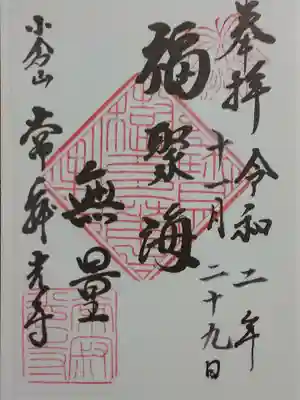 奉拝 令和二年
十一月二十九日
福聚海
無量
小倉山 常寂光寺